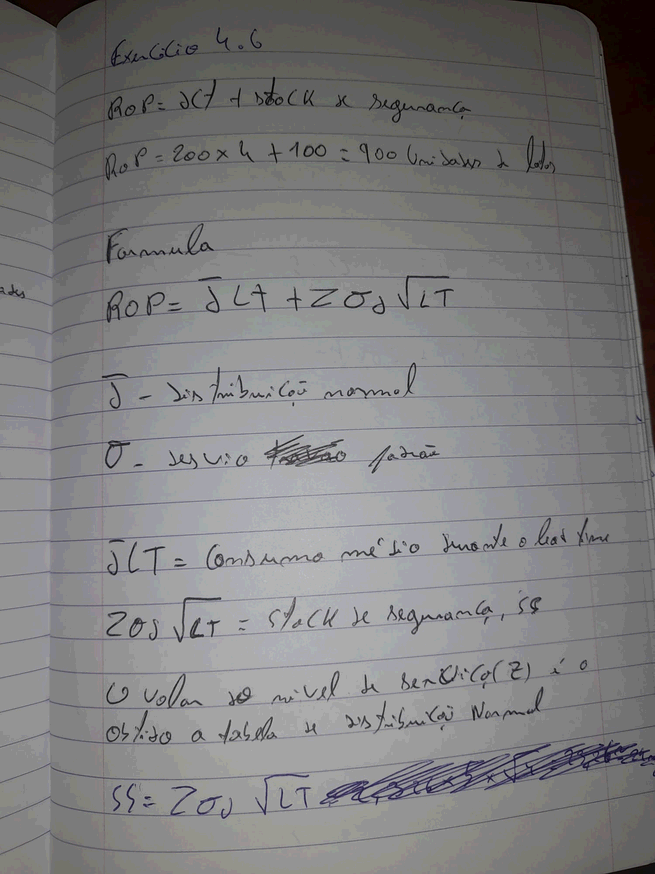 Exercício 4.6
ROP = dLt + stock de segurança
ROP = 200 x 4 + 100 = 900 Unidades de
Formula
ROP = d̅ Lt + Z σd √LT
d̅ - distribuição normal
σ - desvio padrão
d̅LT = Consumo médio durante o lead time
Zσd √LT = stock de segurança, ss
O valor do nivel de serviço (Z) é o
obtido a tabela de distribuição Normal
SS = Zσd √LT
ades